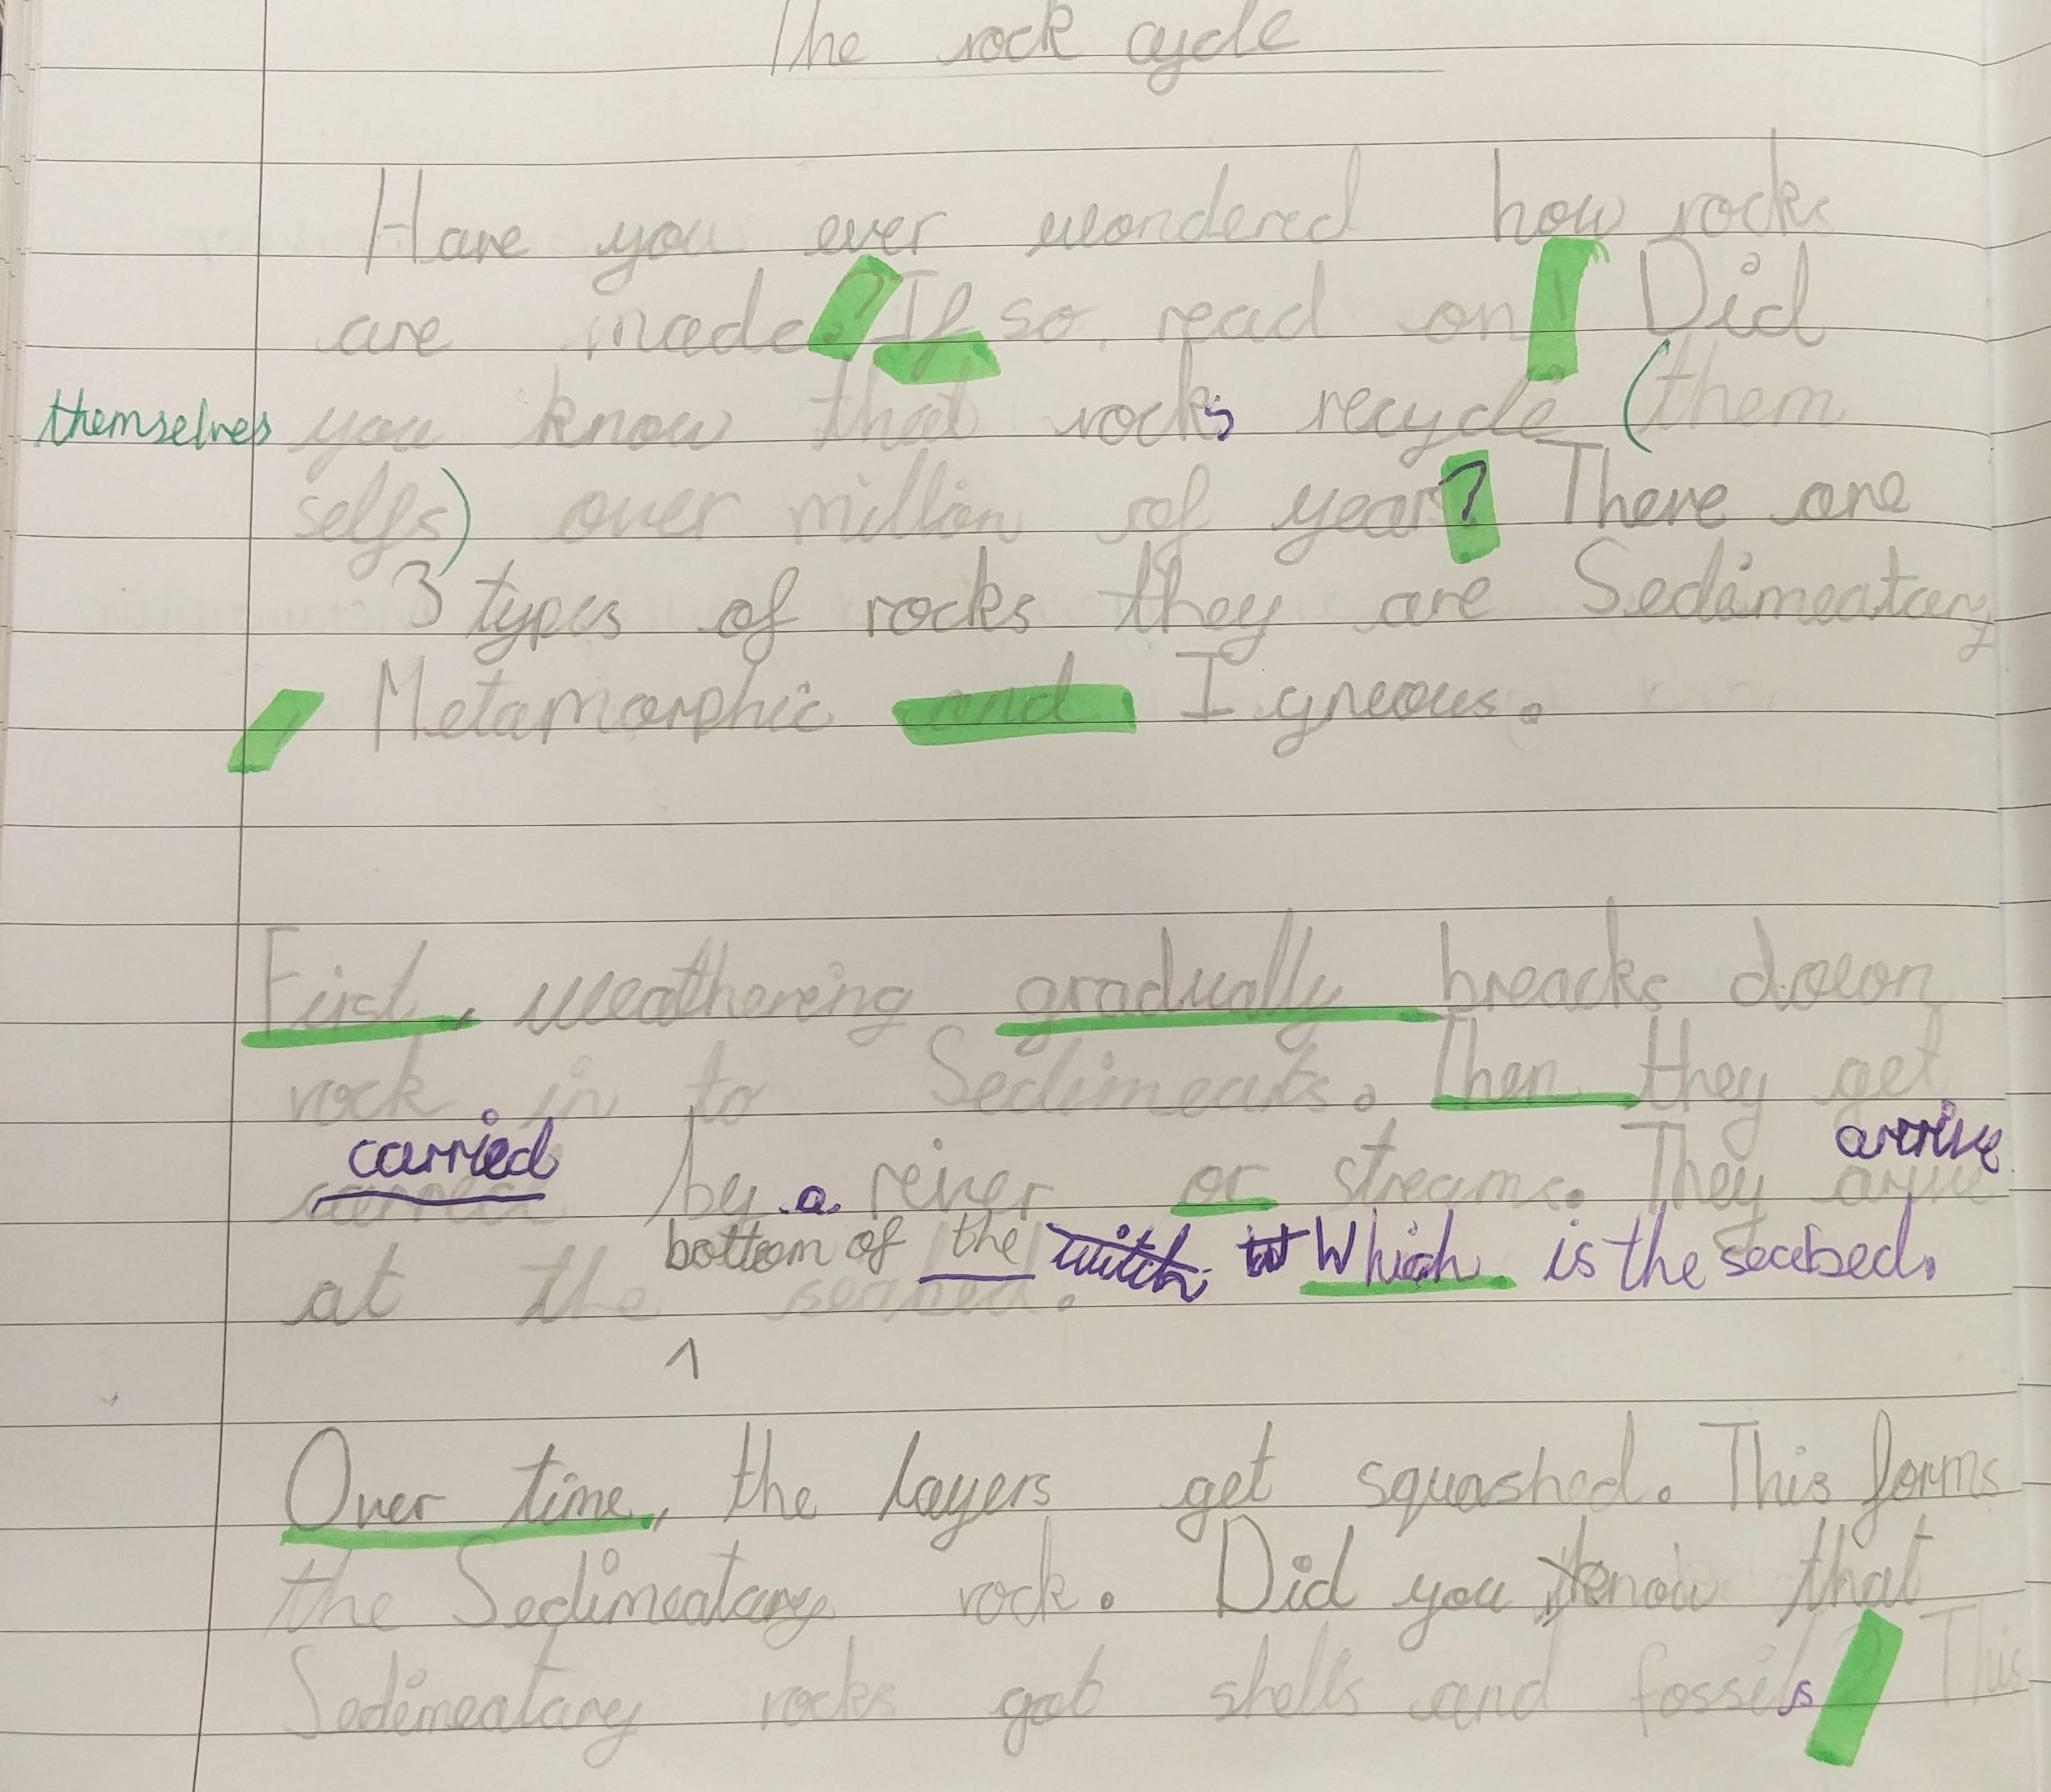 The rock cycle
Have you ever wondered how rocks
are made? If so, read on! Did
themselves you know that rocks recycle (them
selfs) over million of year? There are
3 types of rocks they are Sedimentary
Metamorphic and Igneous.
First, weathering gradually breacks down
rock in to Sediments. Then they get
carried arrive
by a reiver or streams. They
bottom of the witch Which is the seabed.
at the seabed.
^
Over time, the layers get squashed. This forms
the Sedimentary rock. Did you know that
Sedimentary rocks got shells and fossils? This